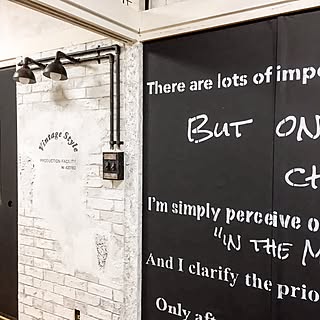 Vintage Style
PRODUCTION FACILITY
There are lots of impo
BUT ON
CH
I'm simply perceive o
"IN THE M
And I clarify the prio
Only aft